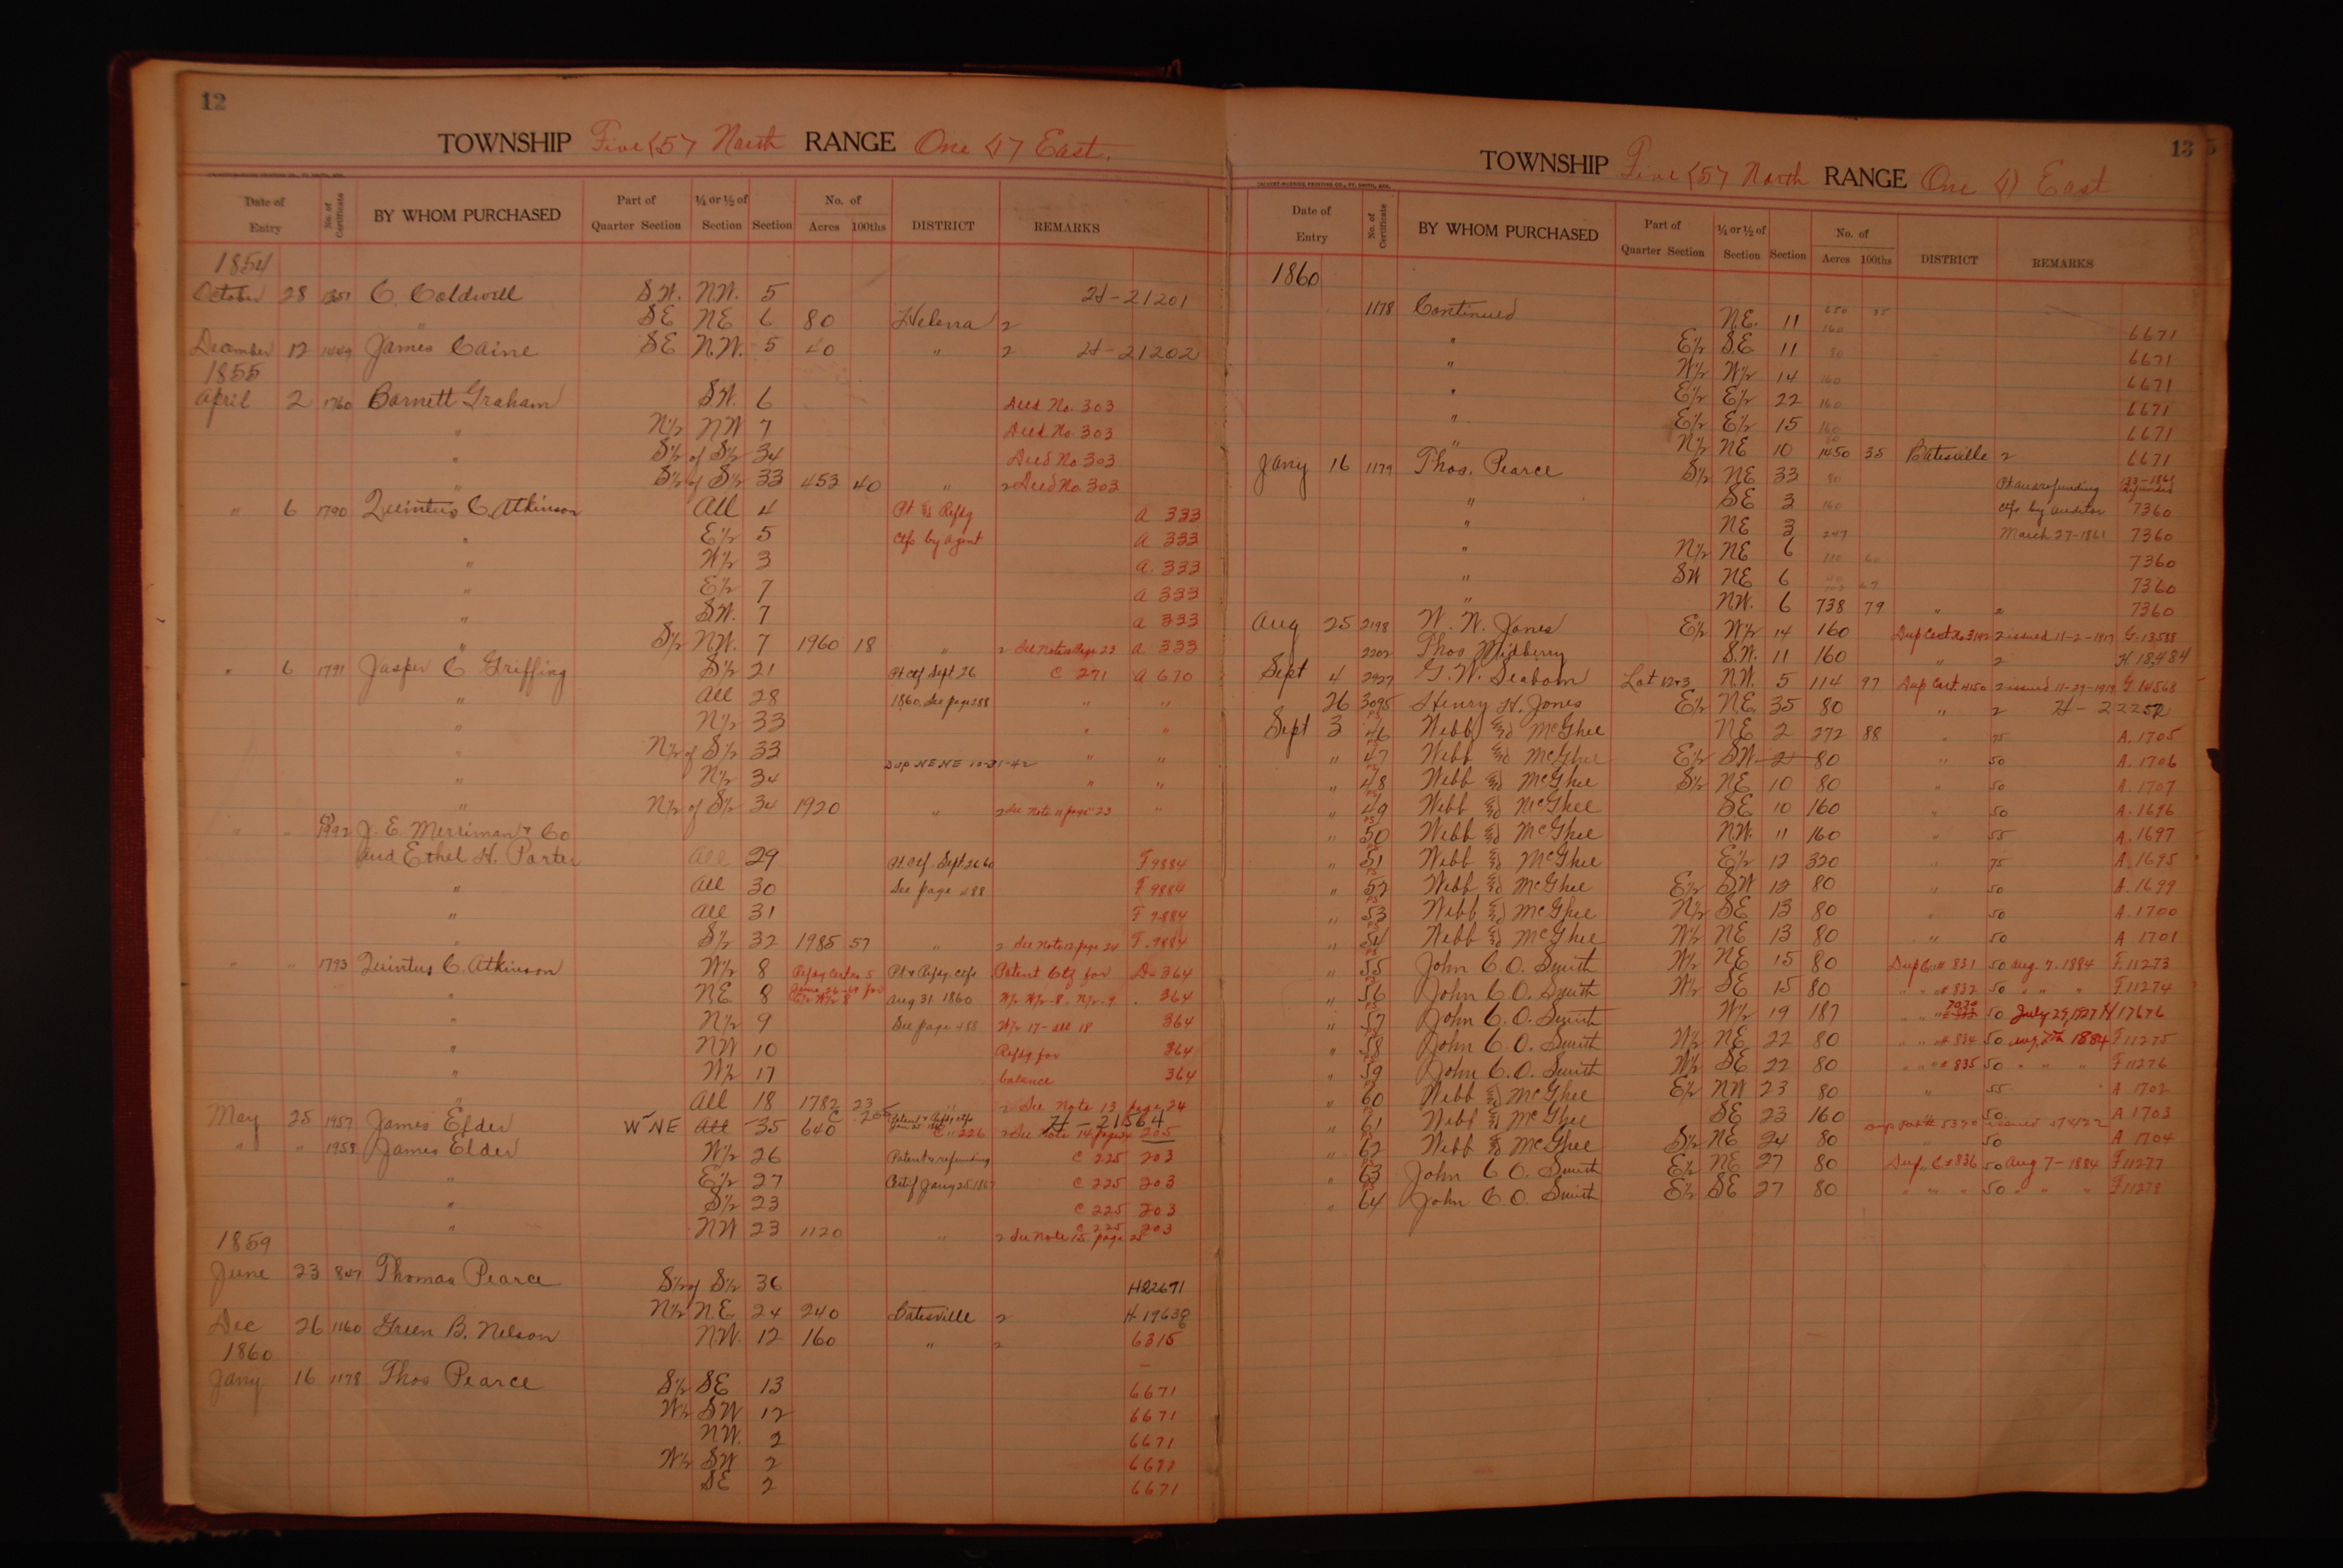 12
TOWNSHIP Five (5) North RANGE One (1) East.
Date of Entry No. of Certificate BY WHOM PURCHASED Part of Quarter Section ¼ or ½ of Section Section No. of Acres 100ths DISTRICT REMARKS
1854
October 28 1351 C. Coldwell S.W. N.W. 5 H-21201
" SE NE 6 80 Helena 2
December 12 1449 James Caine SE N.W. 5 40 " 2 H-21202
1855
April 2 1760 Barnett Graham S.W. 6 Deed No. 303
" N½ NW 7 Deed No. 303
" S½ of S½ 34 Deed No 303
" S½ of S½ 33 453 40 " 2 Deed No. 303
" 6 1790 Quintus C. Atkinson All 4 Pt & Refdg A 333
" E½ 5 Ctfs by Agent A 333
" W½ 3 A. 333
" E½ 7 A 333
" S.W. 7 A 333
" S½ N.W. 7 1960 18 " 2 See Note Page 23 A 333
" 6 1791 Jasper C Griffing S½ 21 Pt Ctf Sept. 26 C 271 A 670
" All 28 1860. See page 288 " "
" N½ 33 " "
" N½ of S½ 33 " "
" N½ 34 Dup NE NE 10-21-42 " "
" N½ of S½ 34 1920 " 2 See Note 11 page 23 "
" " 1792 J. E. Merriman & Co
and Ethel H. Porter All 29 Pt. Ctf. Sept. 26 60 F 9884
" All 30 See page 488 F 9884
" All 31 F 9884
" S½ 32 1985 57 " 2 See Note 12 page 24 F. 9884
" " 1793 Quintus C. Atkinson W½ 8 Pt & Refdg. ctfs Patent Ctf for D- 364
" N.E. 8 Aug 31 1860 W½ W½-8. N½-9 . 364
" N½ 9 See page 488 W½ 17- All 18 364
" NW 10 Refdg for 364
" W½ 17 balance 364
" All 18 1782 23 " 2 See Note 13 page 24
May 25 1957 James Elder W NE All 35 640 H - 21564
C 226 2 See Note 14 page 24 205
" " 1958 James Elder W½ 26 Patent & refunding C 225 203
" E½ 27 Certif Jany 25 1867 C 225 203
" S½ 23 C 225 203
" NW 23 1120 " 2 See Note 15. page 25 C 225 203
1859
June 23 847 Thomas Pearce S½ of S½ 36 H22671
N½ N.E. 24 240 Batesville 2 H-19638
Dec 26 1160 Green B. Nelson N.W. 12 160 " 2 6315
1860
Jany 16 1178 Thos Pearce S½ SE 13 6671
W½ SW 12 6671
N.W. 2 6671
W½ SW 2 6671
SE 2 6671
13
TOWNSHIP Five (5) North RANGE One (1) East
Date of Entry No. of Certificate BY WHOM PURCHASED Part of Quarter Section ¼ or ½ of Section Section No. of Acres 100ths DISTRICT REMARKS
1860
1178 Continued N.E. 11 160 6671
" E½ S.E. 11 80 6671
" W½ W½ 14 160 6671
" E½ E½ 22 160 6671
" E½ E½ 15 160 6671
" N½ NE 10 1450 35 Batesville 2 6671
Jany 16 1179 Thos. Pearce S½ NE 33 80 Pt and refunding
" SE 3 160 Ctfs by Auditor 7360
" NE 3 247 March 27-1861 7360
" N½ NE 6 7360
" SW NE 6 7360
" NW. 6 738 79 " 2 7360
Aug 25 2198 W. W. Jones E½ W½ 14 160 Dup Cert. No 3142 2 issued 11-2-1917 G-13588
2202 Thos Midberry S.W. 11 160 " 2 H. 18,484
Sept 4 2927 G. W. Seaborn Lot 12&3 N.W. 5 114 97 Dup Cert. 4150 2 issued 11-29-1919 G 14568
26 3095 Henry H. Jones E½ NE 35 80 " 2 H- 22252
Sept 3 46 Webb & McGhee NE 2 272 88 " 75 A. 1705
" 47 Webb & McGhee E½ SW 2 80 " 50 A. 1706
" 48 Webb & McGhee S½ NE 10 80 " 50 A. 1707
" 49 Webb & McGhee SE 10 160 50 A. 1696
" 50 Webb & McGhee N.W. 11 160 " 55 A. 1697
" 51 Webb & McGhee E½ 12 320 " 75 A. 1695
" 52 Webb & McGhee E½ SW 12 80 " 50 A. 1699
" 53 Webb & McGhee N½ SE 13 80 " 50 A. 1700
" 54 Webb & McGhee W½ NE 13 80 " 50 A 1701
" 55 John C. O. Smith W½ NE 15 80 Dup C. # 831 50 Aug. 7. 1884 F 11273
" 56 John C. O. Smith W½ SE 15 80 " " # 832 50 " " " F 11274
" 57 John C. O. Smith W½ 19 187 " " 50 July 29, 1927 H 17676
" 58 John C. O. Smith W½ NE 22 80 " " # 834 50 Aug. 7th 1884 F 11275
" 59 John C. O. Smith W½ SE 22 80 " " # 835 50 " " " F 11276
" 60 Webb & McGhee E½ NW 23 80 " 55 A 1702
" 61 Webb & McGhee SE 23 160 50 A 1703
" 62 Webb & McGhee S½ NE 24 80 " 50 A 1704
" 63 John C O. Smith E½ NE 27 80 Dup. C # 836 50 Aug 7-1884 F 11277
" 64 John C. O. Smith E½ SE 27 80 " " " 50 " " " F 11278